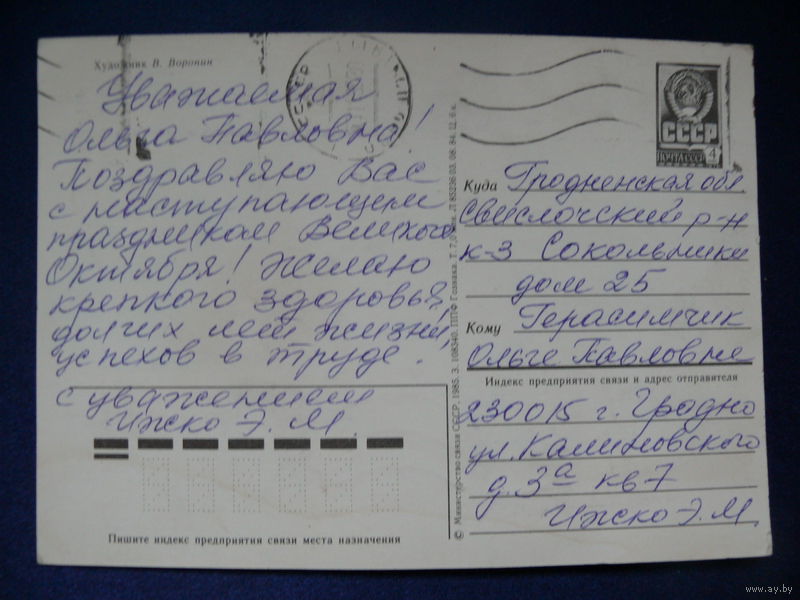 Художник В. Воронин
Уважаемая
Ольга Павловна!
Поздравляю Вас
с наступающим
праздником Великого
Октября! Желаю
крепкого здоровья,
долгих лет жизни,
успехов в труде!
с уважением
Ижско Э. М.
Пишите индекс предприятия связи места назначения
© Министерство связи СССР. 1985. З. 108340. ППФ Гознака. Т. 7,0 08. 84. Ц. 6 к.
СССР
ПОЧТА СССР 4
Куда Гродненская обл
Свислочский р-н
к-з Сокольники
дом 25
Кому Герасимчик
Ольге Павловне
Индекс предприятия связи и адрес отправителя
230015 г. Гродно
ул. Калиновского
д. 3а кв 7
Ижско Э. М.
www.ay.by